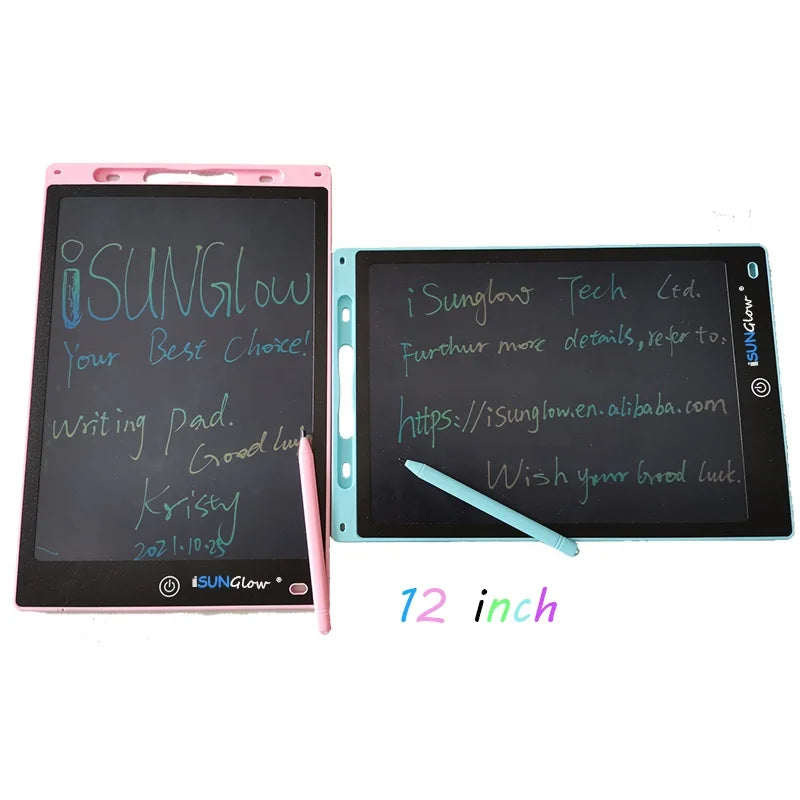 iSUNGlow
Your Best Choice!
Writing Pad.
Good Luck
Kristy
2021.10.25
iSUNGlow ®
iSunglow Tech Ltd.
Furthur more details, refer to:
https://isunglow.en.alibaba.com
Wish your Good Luck.
iSUNGlow ®
12 inch